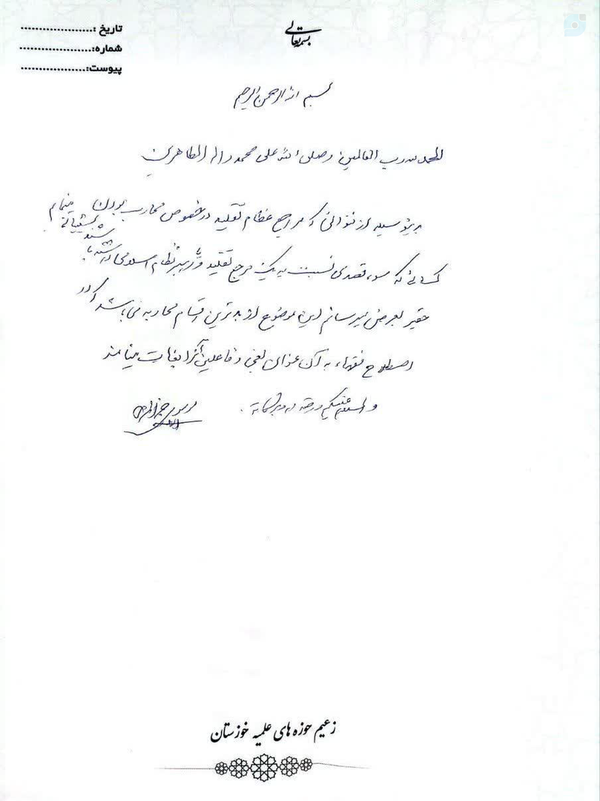 بسمه تعالی
تاریخ :....................
شماره:....................
پیوست:..................
بسم الله الرحمن الرحیم
الحمد لله رب العالمین وصلی الله علی محمد وآله الطاهرین
بدینوسیله از فتوای مراجع عظام تقلید در خصوص محارب بودن
پشتیبانی مینمایم
کسانی که سوء قصدی نسبت به یک مرجع تقلید و یا رهبر نظام اسلامی داشته باشند
حقیر بعرض میرسانم این موضوع از بدترین اقسام محاربه می باشد که در
اصطلاح فقهاء به آن عنوان بغی و فاعلین آنرا بغات مینامند
والسلام علیکم ورحمة الله وبرکاته.
زعیم حوزه های علمیه خوزستان